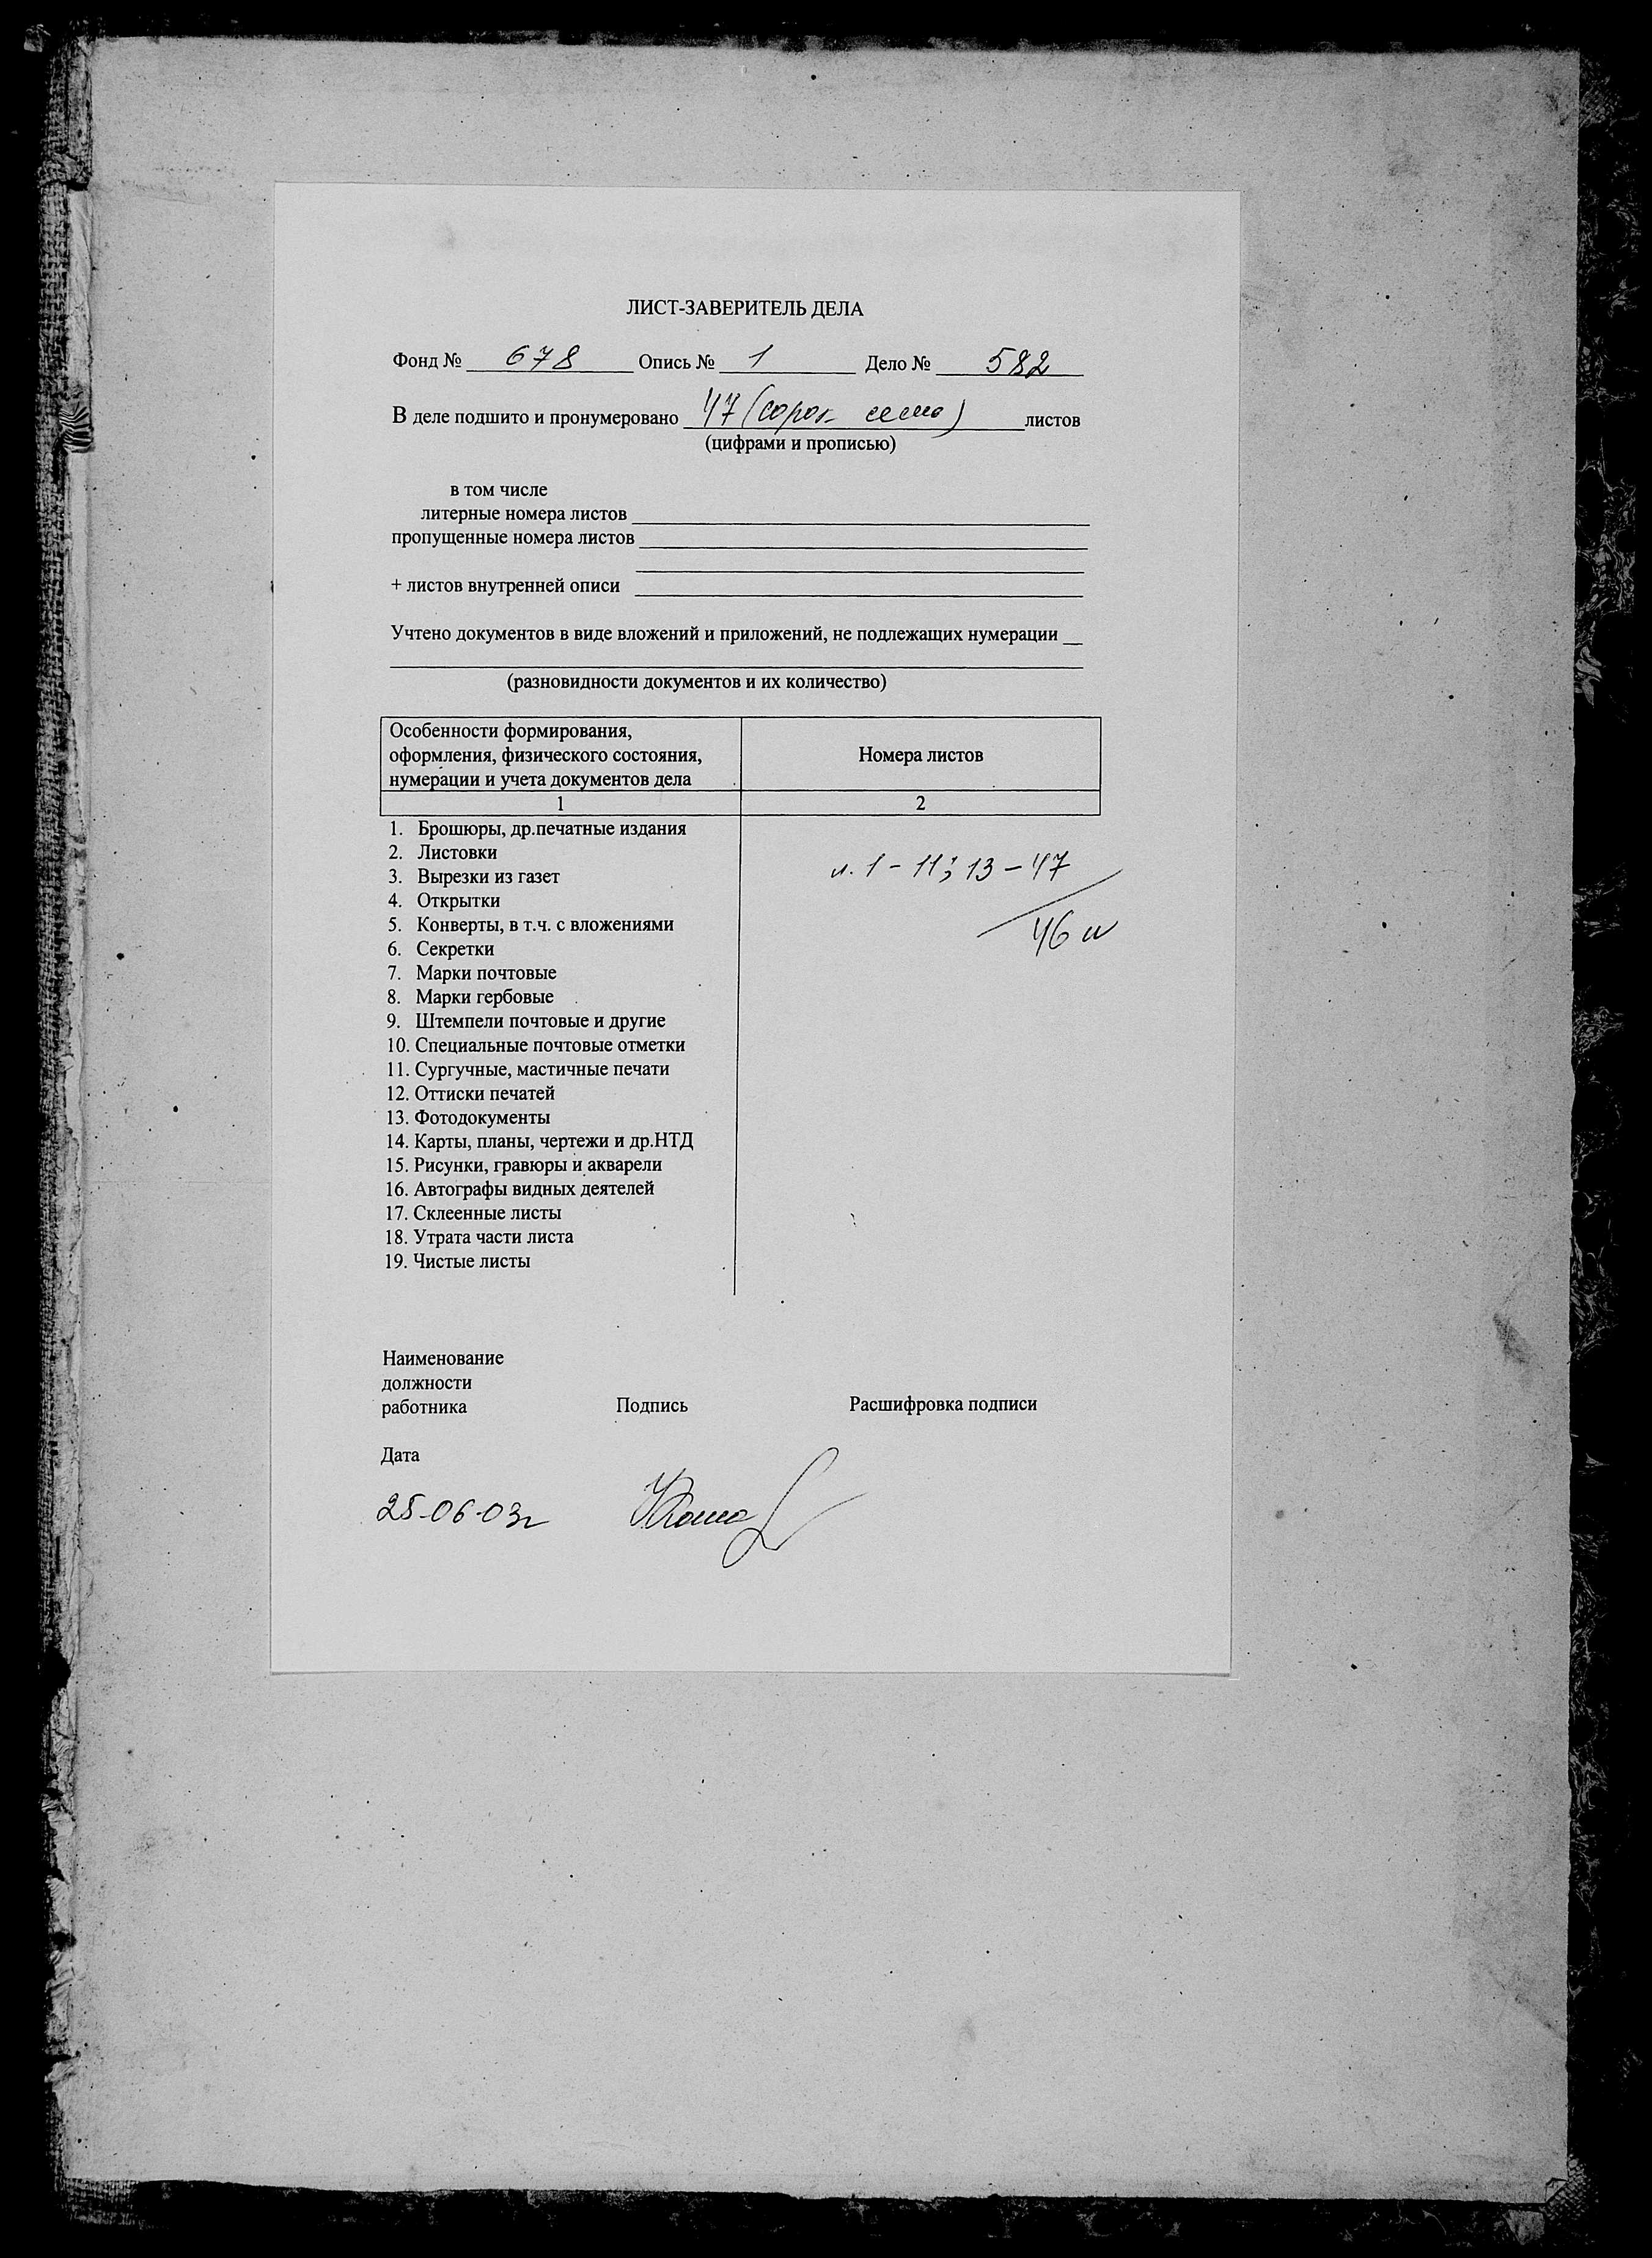 ЛИСТ-ЗАВЕРИТЕЛЬ ДЕЛА
Фонд № 678 Опись № 1 Дело № 582
В деле подшито и пронумеровано 47 (сорок семь) листов
(цифрами и прописью)
в том числе
литерные номера листов
пропущенные номера листов
+ листов внутренней описи
Учтено документов в виде вложений и приложений, не подлежащих нумерации
(разновидности документов и их количество)
Особенности формирования,
оформления, физического состояния,
нумерации и учета документов дела
Номера листов
1 2
1. Брошюры, др.печатные издания
2. Листовки
л. 1 - 11; 13 - 47
3. Вырезки из газет
4. Открытки
5. Конверты, в т.ч. с вложениями
46 л
6. Секретки
7. Марки почтовые
8. Марки гербовые
9. Штемпели почтовые и другие
10. Специальные почтовые отметки
11. Сургучные, мастичные печати
12. Оттиски печатей
13. Фотодокументы
14. Карты, планы, чертежи и др.НТД
15. Рисунки, гравюры и акварели
16. Автографы видных деятелей
17. Склеенные листы
18. Утрата части листа
19. Чистые листы
Наименование
должности
работника Подпись Расшифровка подписи
Дата
25-06-03г